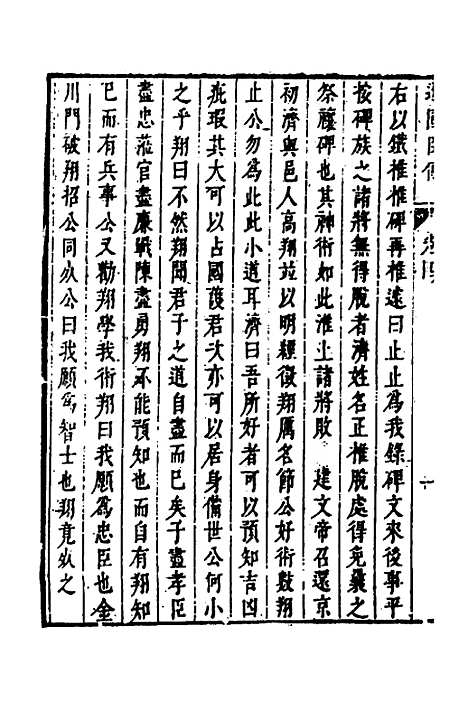 右以鐵椎椎碑再椎遽曰止止爲我錄碑文來後事平
按碑族之諸將無得脫者濟姓名正椎脫處得免曩之
祭禳碑也其神術如此淮上諸將敗　建文帝召還京
初濟與邑人高翔並以明經徵翔厲名節公好術數翔
止公勿爲此此小道耳濟曰吾所好者可以預知吉凶
疵瑕其大可以占國護君次亦可以居身備世公何小
之乎翔曰不然翔聞君子之道自盡而已矣子盡孝臣
盡忠蒞官盡廉戰陳盡勇翔不能預知也而自有翔知
已而有兵事公又勸翔學我術翔曰我願爲忠臣也金
川門破翔招公同死公曰我願爲智士也翔竟死之